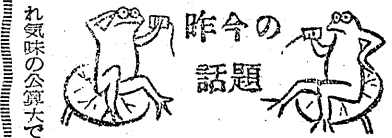 昨今の
話題
れ気味の公算大で